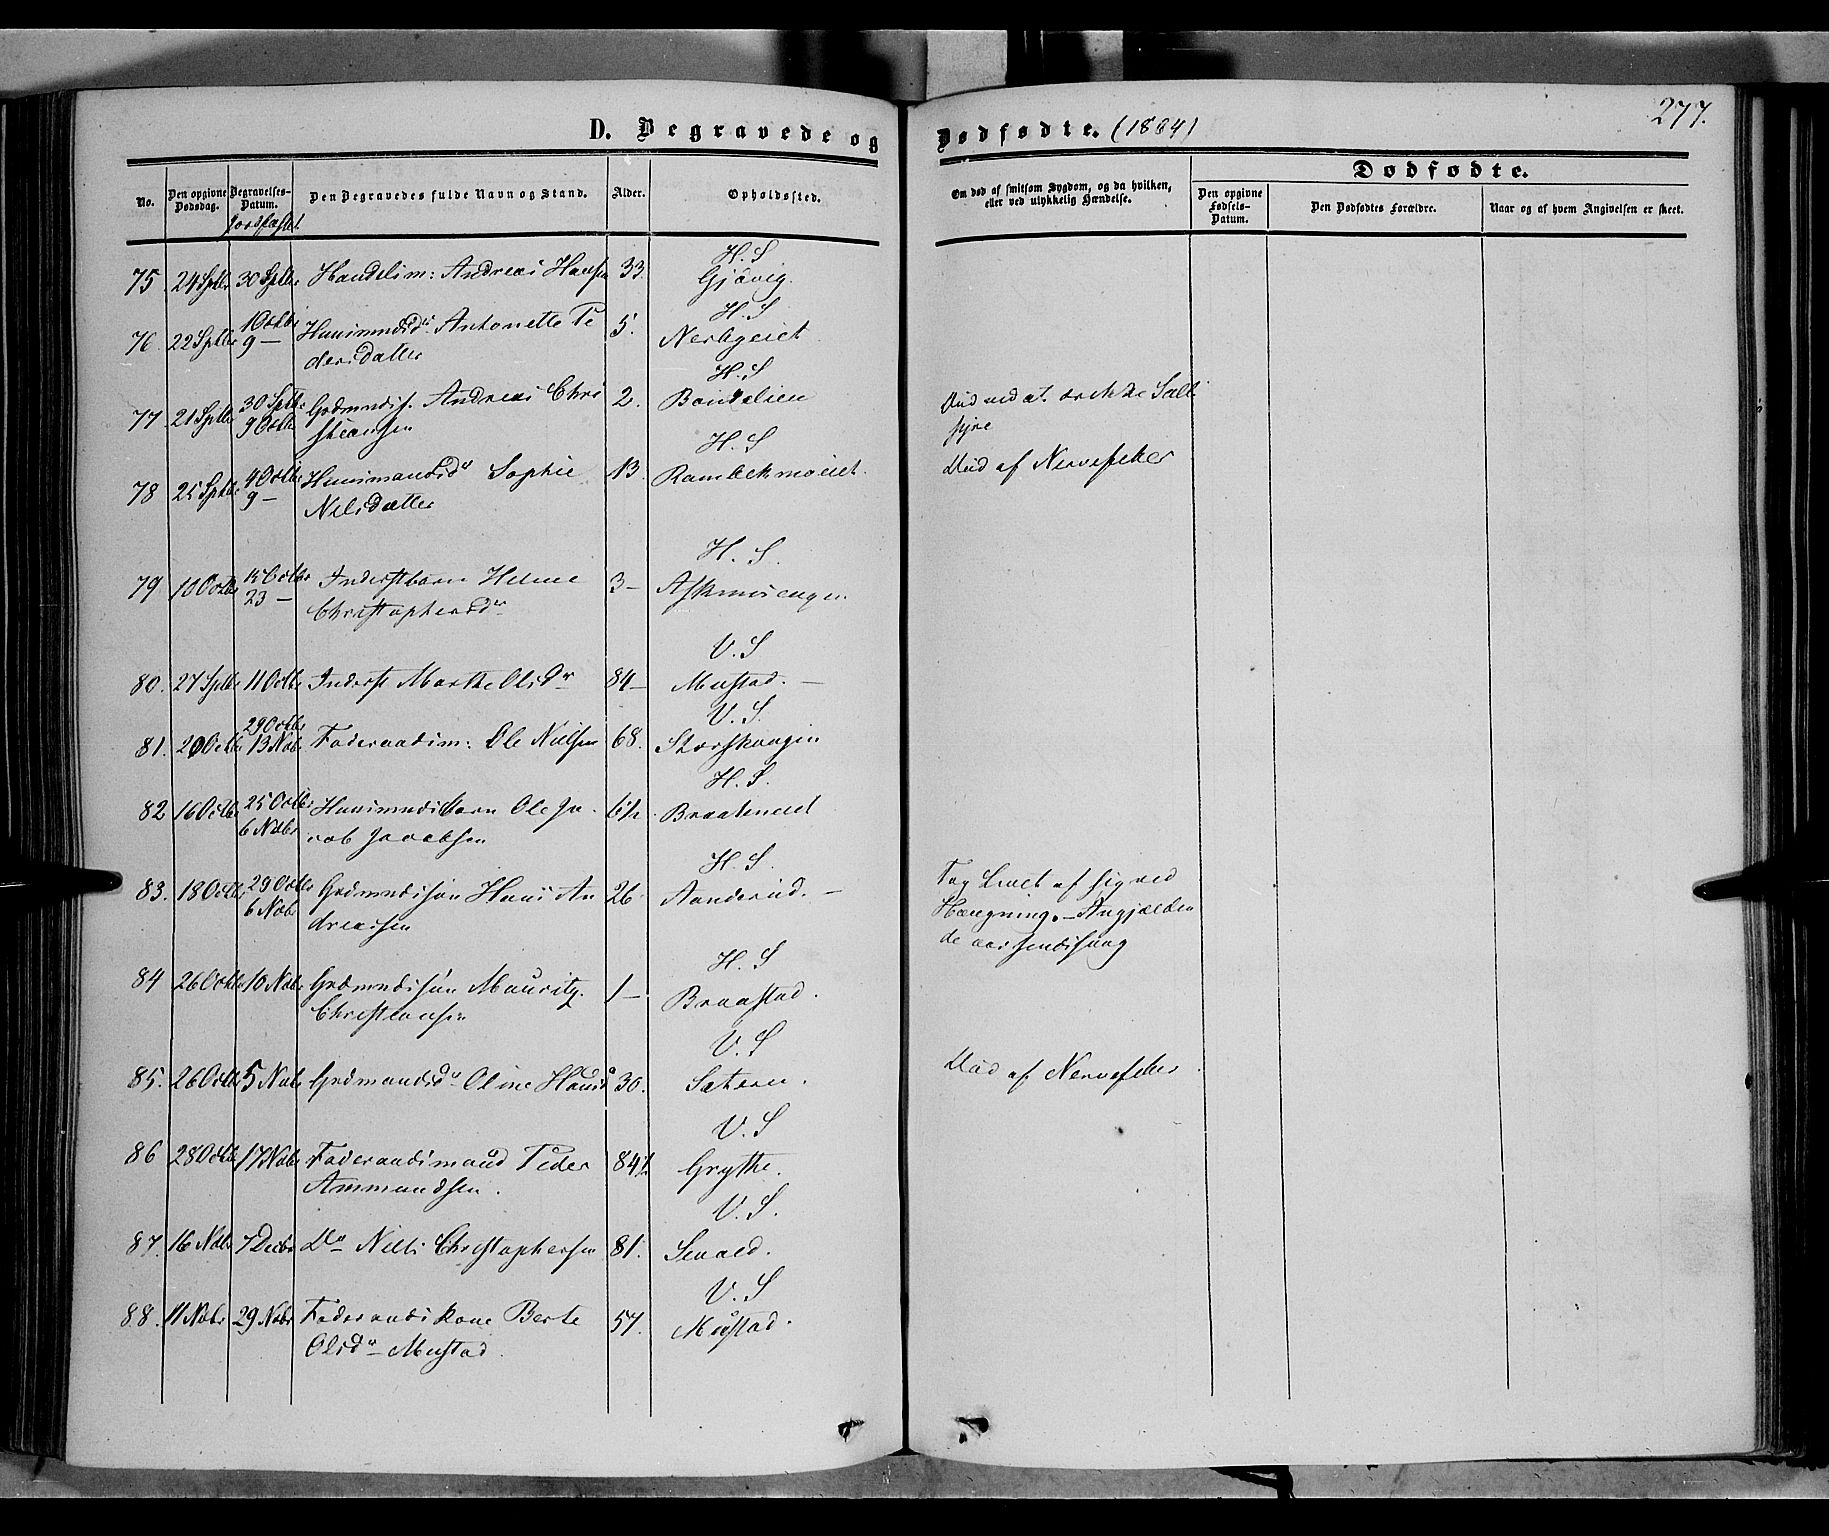 277.
D. Begravede og Dødfødte. (1864)
No. Den opgivne Dødsdag. Begravelses-Datum. Jordfæstet Den Begravedes fulde Navn og Stand. Alder. Opholdssted. Om død af smitsom Sygdom, og da hvilken, eller ved ulykkelig Hændelse.
Dødfødte.
Den opgivne Fødsels-Datum. Den Dødfødtes Forældre. Naar og af hvem Angivelsen er skeet.
H. S
75. 24 Sptbr 30 Sptbr Handelsm: Andreas Hansen 33. Gjøvig.
H. S
76. 22 Sptbr 1 Octbr 9 — Huusmdsdr Antonette Pe 5. Nerbyeiet
dersdatter
H. S
77. 21 Sptbr 30 Sptbr 9 Octbr Grdmnds s. Andreas Chri 2. Baadelien Død ved at
stiansen
H. S
78 25 Sptbr 4 Octbr 9 — Huusmandsdr Sophie 13. Rambekmoeiet. Død af Nervefeber
Nilsdatter
H. S.
79 10 Octbr 15 Octbr 23 — Inderstbarn Helene 3 —
Christophersdr
V. S
80. 27 Sptbr 11 Octbr Inderst Marthe Olsdr 84 — Mustad. —
V. S.
81. 20 Octbr 29 Octbr 13 Nvbr Føderaadsm: Ole Nielsen 68. Storskaugen
H. S.
82 16 Octbr 25 Octbr 6 Nvbr Huusmndsbarn Ole Ja- Braateneiet
cob Jacobsen
H. S.
83. 18 Octbr 29 Octbr 6 Nvbr Grdmndssøn Hans An 26. Aanderud. — Tog Livet af sig ved
dreassen Hængning. — Angjælden
de var sindssvag
H. S
84 26 Octbr 10 Nvbr Grdmndssøn Mauritz 1 — Braastad.
Christiansen
V. S
85. 26 Octbr 5 Nvbr Grdmandsdr Oline Hansd 30. Sætern. Død af Nervefeber
V. S
86 28 Octbr 17 Nvbr Føderaadsmand Peder 84½ Grythe.
Ammundsen.
V. S.
87. 16 Nvbr 7 Decbr Do Nils Christophersen 81.
V. S
88. 11 Nvbr 29 Nvbr Føderaadskone Berte 57. Mustad.
Olsdr Mustad.